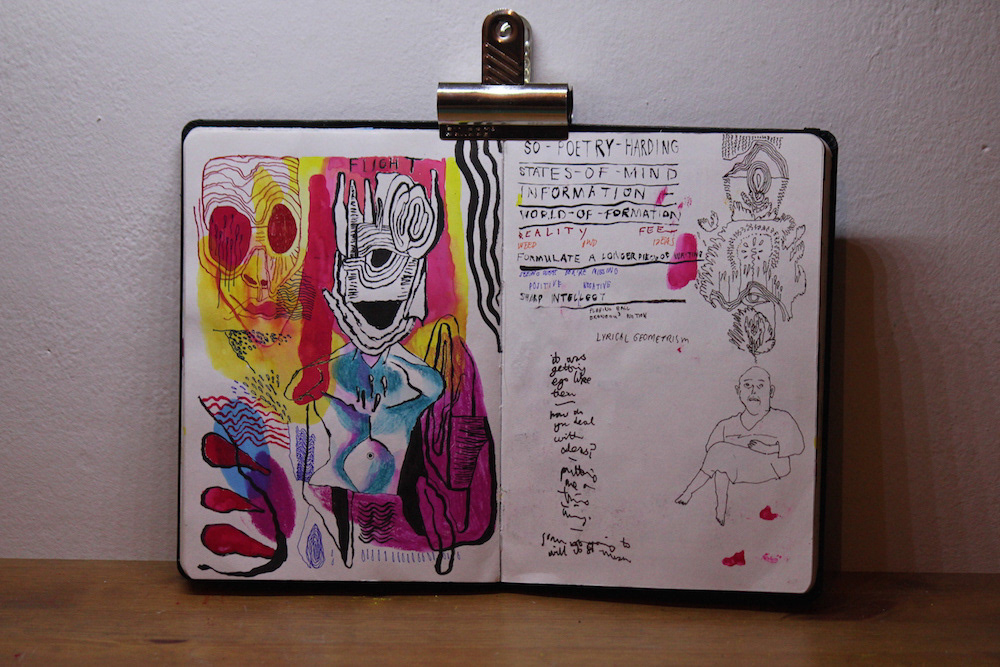 FLIGHT
SO-POETRY-HARDING
STATES-OF-MIND
INFORMATION
WORLD-OF-FORMATION
REALITY FEE
WEED AND IDEAS
FORMULATE A LONGER PIECE OF WRITING
POSITIVE NEGATIVE
SHARP INTELLECT
LYRICAL GEOMETRISM
it was
getting
ego like
then
how do
you deal
with
putting
me on
thing
will